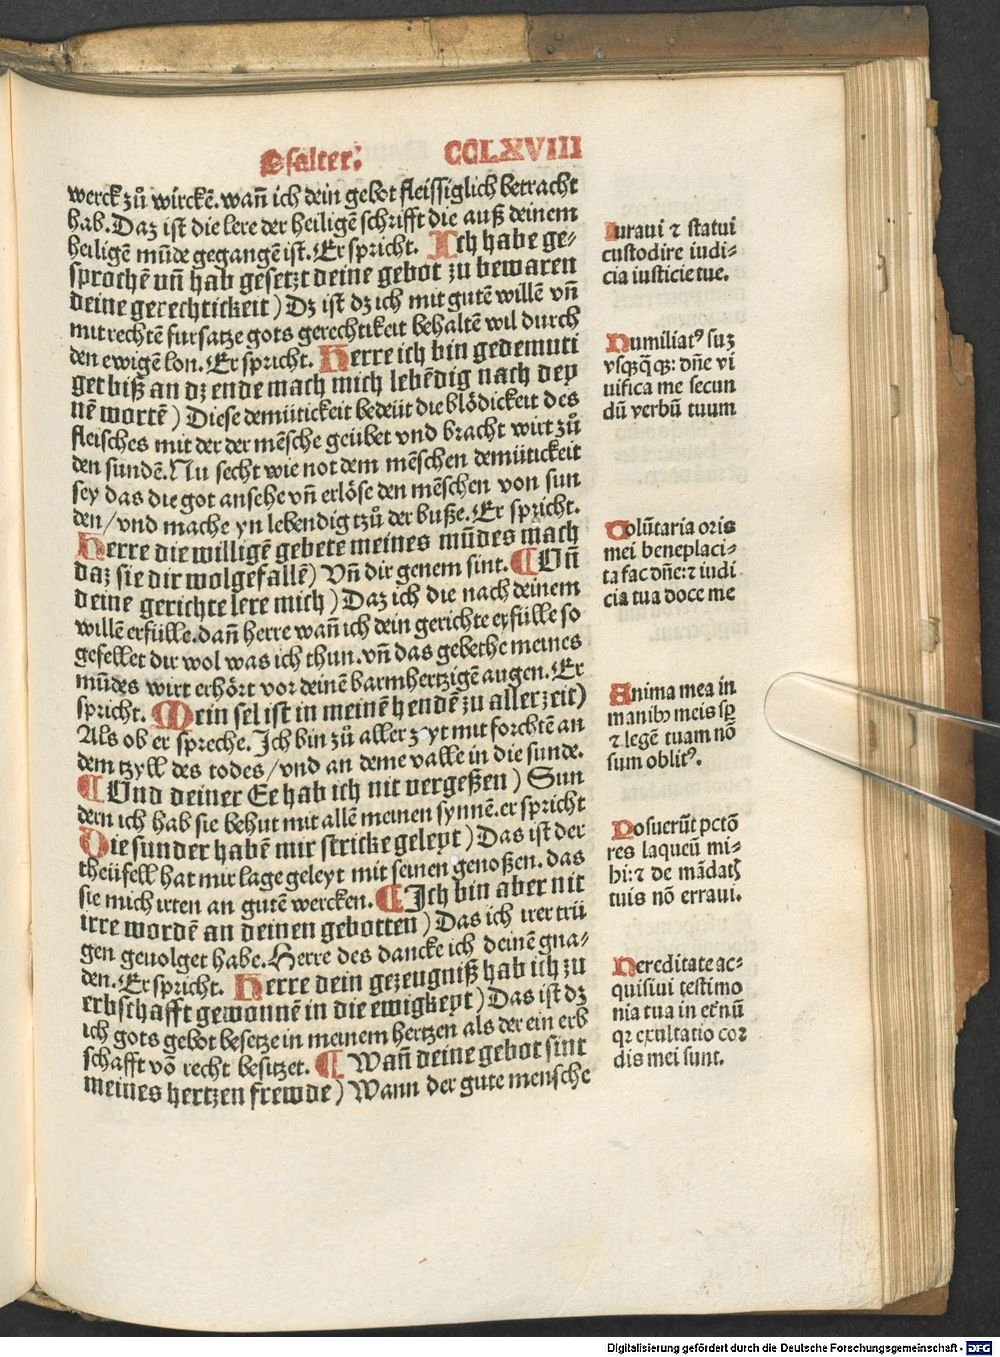 Psalter. CCLXVIII
werck zů wirckē. wañ ich dein gebot fleissiglich betracht
hab. Daz ist die lere der heiligē schrifft die auß deinem
heiligē mūde gegangē ist. Er spricht. Ich habe ge-
sprochē vñ hab gesetzt deine gebot zu bewaren
deine gerechtickeit) Dz ist dz ich mit gutē willē vñ
mit rechtē fursatze gots gerechtikeit behaltē wil durch
den ewigē lon. Er spricht. Herre ich bin gedemuti
get biß an dz ende mach mich lebēdig nach dey
nē wortē) Diese demütickeit bedeüt die blödickeit des
fleisches mit der der mēsche geübet vnd bracht wirt zů
den sundē. Nu secht wie not dem mēschen demütickeit
sey das die got ansehe vñ erlöse den mēschen von sun
den/vnd mache yn lebendig tzů der buße. Er spricht.
Herre die willigē gebete meines mūdes mach
daz sie dir wolgefallē) Vñ dir genem sint. ¶ Vñ
deine gerichte lere mich) Daz ich die nach deinem
willē erfülle. dañ herre wañ ich dein gerichte erfülle so
gefellet dir wol was ich thun. vñ das gebethe meines
mūdes wirt erhört vor deinē barmhertzigē augen. Er
spricht. Mein sel ist in meinē hendē zu aller zeit)
Als ob er spreche. Ich bin zů aller zyt mit forchtē an
dem tzyll des todes/vnd an deme valle in die sunde.
¶ Vnd deiner Ee hab ich nit vergeßen) Sun
dern ich hab sie behut mit allē meinen synnē. er spricht
Die sunder habē mir stricke geleyt) Das ist der
theüfell hat mir lage geleyt mit seinen genoßen. das
sie mich irten an gutē wercken. ¶ Ich bin aber nit
irre wordē an deinen gebotten) Das ich irer trü
gen geuolget habe. Herre des dancke ich deinē gna-
den. Er spricht. Herre dein gezeugniß hab ich zu
erbschafft gewonnē in die ewigkeyt) Das ist dz
ich gots gebot besetze in meinem hertzen als der ein erb
schafft vō recht besitzet. ¶ Wañ deine gebot sint
meines hertzen frewde) Wann der gute mensche
Iuraui ⁊ statui
custodire iudi-
cia iusticie tue.
Humiliatꝰ suꝫ
vsqꝫ q̄qꝫ: dñe vi
uifica me secun
dū verbū tuum
Volūtaria oris
mei beneplaci-
ta fac dñe: ⁊ iudi
cia tua doce me
Anima mea in
manibꝰ meis sꝑ
⁊ legē tuam nō
sum oblitꝰ.
Posuerūt pctō
res laqueū mi-
hi: ⁊ de mādatꝭ
tuis nō erraui.
Hereditate ac-
quisiui testimo
nia tua in etnū
qꝛ exultatio coꝛ
dis mei sunt.
Digitalisierung gefördert durch die Deutsche Forschungsgemeinschaft - DFG